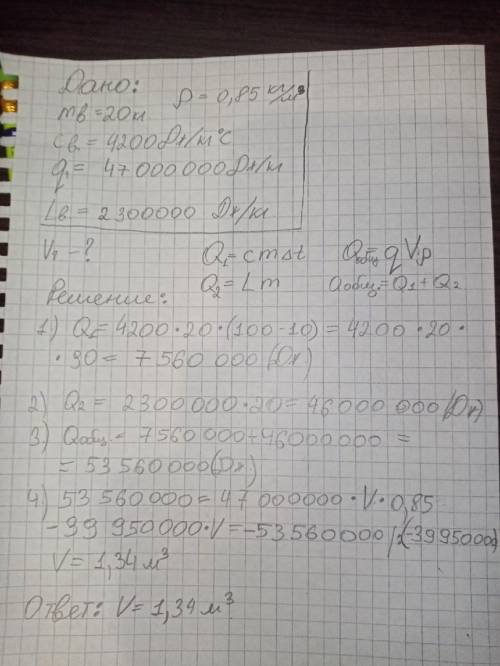 Дано:
mв = 20кг ρ = 0,85 кг/м³
св = 4200 Дж/кг°С
q = 47 000 000 Дж/кг
Lв = 2300000 Дж/кг
V1 - ? Q1 = cmΔt Qобщ = qVρ
Решение: Q2 = Lm Qобщ = Q1 + Q2
1) Q1 = 4200 · 20 · (100 - 10) = 4200 · 20 ·
· 90 = 7 560 000 (Дж)
2) Q2 = 2300 000 · 20 = 46 000 000 (Дж)
3) Qобщ = 7560 000 + 46000000 =
= 53 560 000 (Дж)
4) 53 560 000 = 47 000000 · V · 0,85
-39 950000 · V = -53560000 /:(-39950000)
V = 1,34 м³
Ответ: V = 1,34 м³